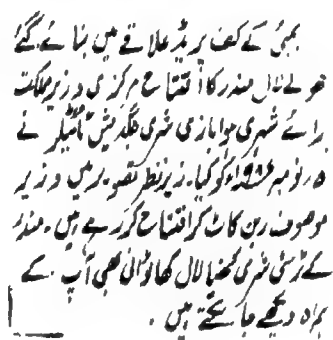 بمبئی کے کف پریڈ علاقے میں بنائے گئے
جھولے لال مندر کا افتتاح مرکزی وزیر مملکت
برائے شہری ہوابازی شری جگدیش ٹائٹلر نے
۵ نومبر ۱۹۸۶ء کو کیا۔ زیر نظر تصویر میں وزیر
موصوف ربن کاٹ کر افتتاح کر رہے ہیں۔ مندر
کے ٹرسٹی شری گھنیا لال بھی آپ کے
ہمراہ دیکھے جا سکتے ہیں۔